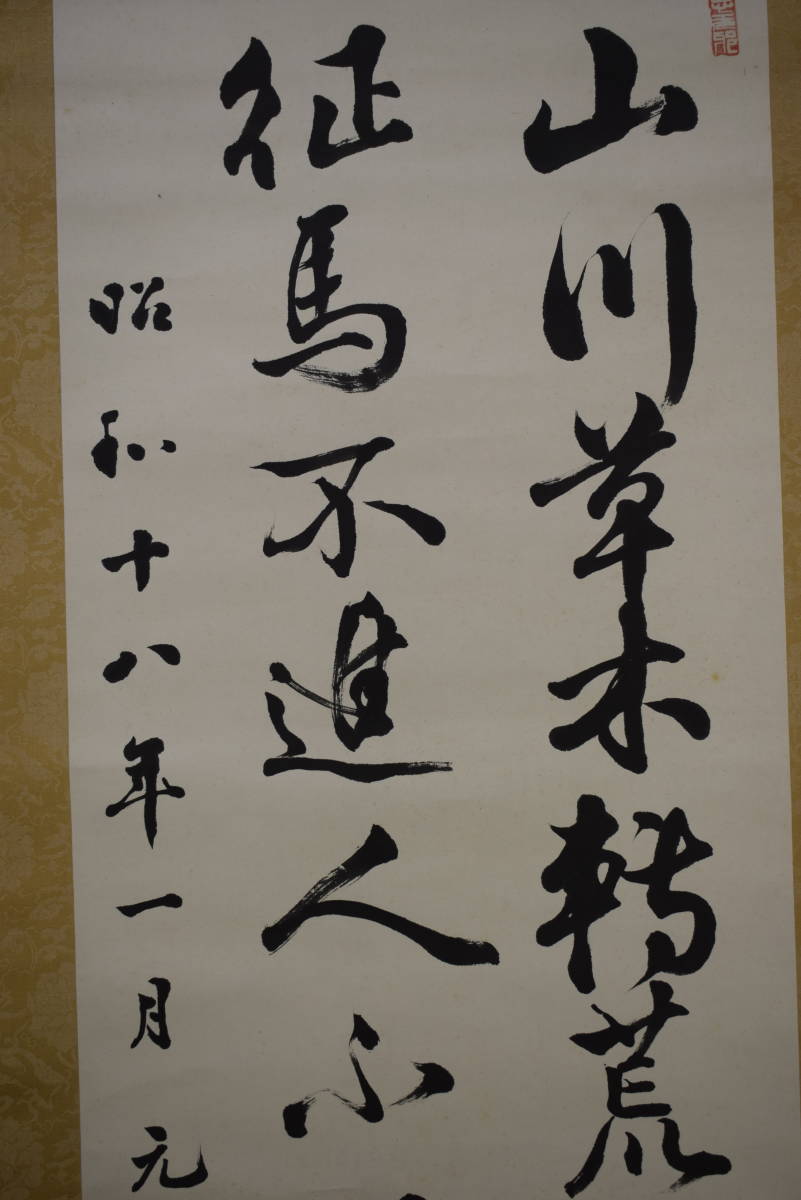 山川草木轉荒
征馬不進人不
昭和十八年一月元